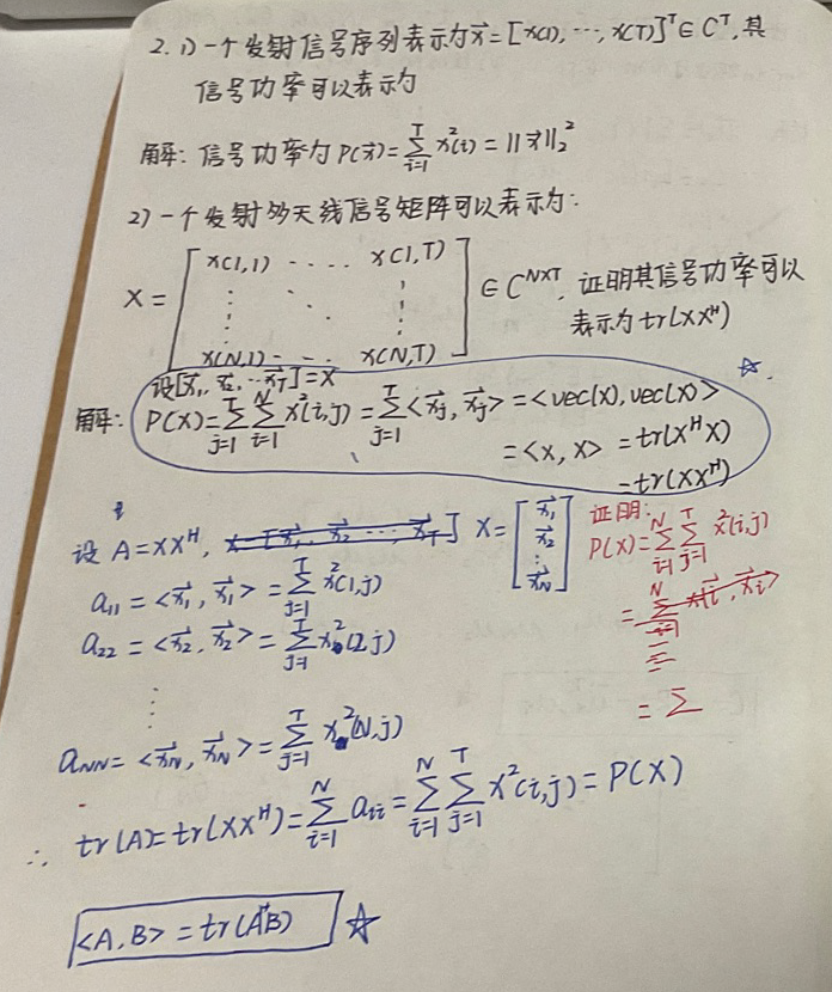 2. 1) 一个发射信号序列表示为x⃗=[x(1), ⋯, x(T)]ᵀ∈Cᵀ, 其
信号功率可以表示为
解: 信号功率为 P(x⃗)=∑_{i=1}^{T} x²(i) = ||x⃗||₂²
2) 一个发射多天线信号矩阵可以表示为:
X = [ x(1,1) ‐ ‐ ‐ ‐ x(1,T)
⋮ ⋱ ⋮
x(N,1) ‐ ‐ ‐ x(N,T) ] ∈ C^{N×T}, 证明其信号功率可以
表示为 tr(XXᴴ)
设[x⃗₁, x⃗₂, ⋯x⃗_T]=X
解: P(X)=∑_{j=1}^{T}∑_{i=1}^{N} x²(i,j) = ∑_{j=1}^{T}<x⃗_j, x⃗_j> = <vec(X), vec(X)> ☆.
= <X, X> = tr(XᴴX)
= tr(XXᴴ)
设 A=XXᴴ, X=[x⃗₁, x⃗₂, ⋯, x⃗_T] X = [ x⃗₁
x⃗₂
⋮
x⃗_N ]
a₁₁ = <x⃗₁, x⃗₁> = ∑_{j=1}^{T} x²(1,j)
a₂₂ = <x⃗₂, x⃗₂> = ∑_{j=1}^{T} x²(2,j)
⋮
a_{NN} = <x⃗_N, x⃗_N> = ∑_{j=1}^{T} x²(N,j)
∴ tr(A)= tr(XXᴴ) = ∑_{i=1}^{N} a_{ii} = ∑_{i=1}^{N}∑_{j=1}^{T} x²(i,j) = P(X)
<A, B> = tr(AᴴB) ☆
证明:
P(X)=∑_{i=1}^{N}∑_{j=1}^{T} x²(i,j)
=
= ∑